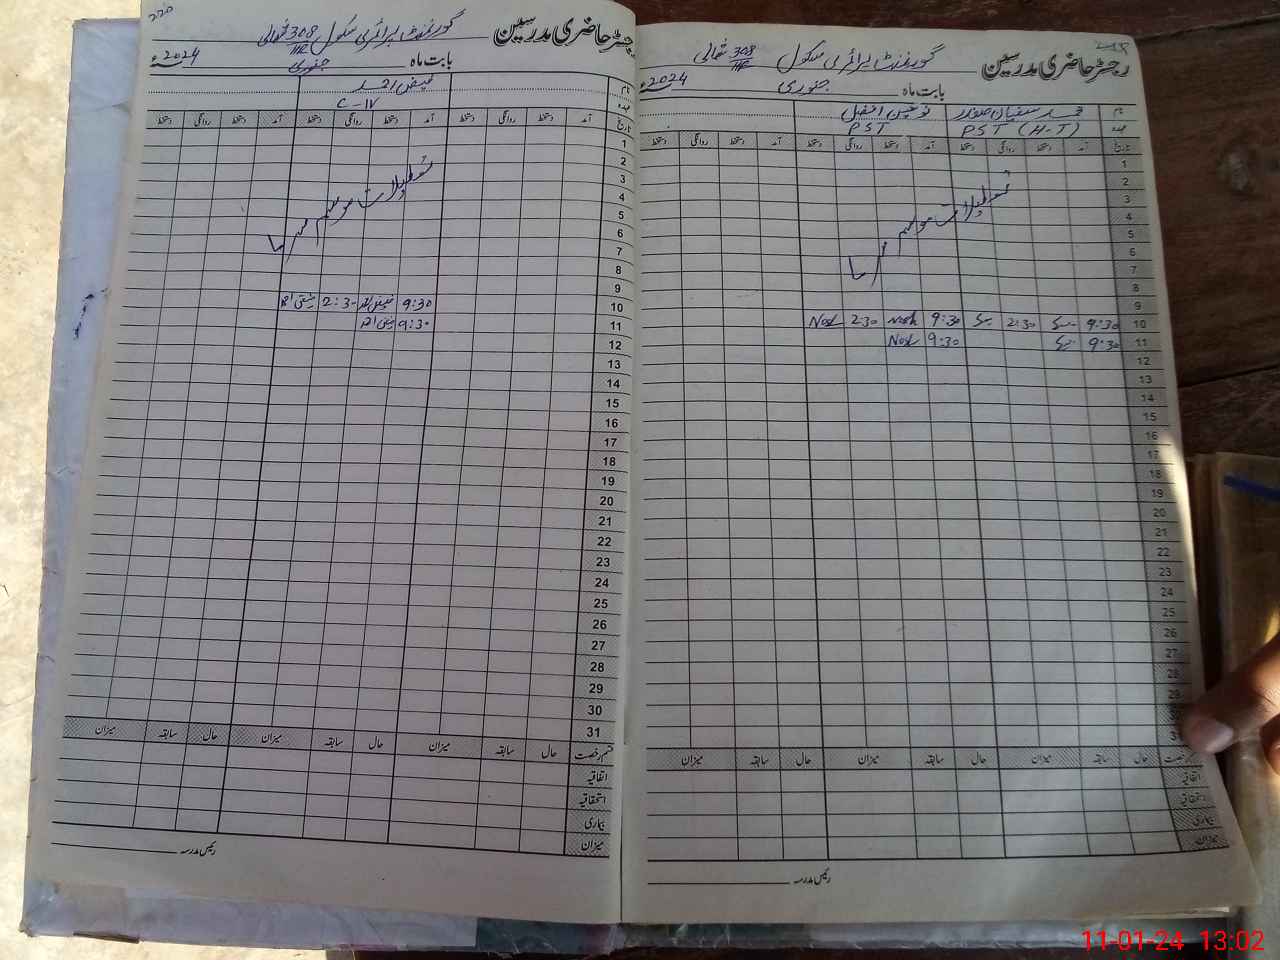 رجسٹر حاضری مدرسین
گورنمنٹ پرائمری سکول 308 شمالی
بابت ماہ جنوری 2024ء
نام محمد سفیان صفدر
عہدہ PST (H-T) PST
تاریخ آمد دستخط روانگی دستخط آمد دستخط روانگی دستخط آمد دستخط روانگی دستخط
1
2
3
4
5
6
7
8
9
تعطیلات موسم سرما
10 9:30 2:30 9:30 2:30
11 9:30 9:30
12
13
14
15
16
17
18
19
20
21
22
23
24
25
26
27
28
29
قسم رخصت حال سابقہ میزان حال سابقہ میزان حال سابقہ میزان
اتفاقیہ
استحقاقیہ
بیماری
میزان
رئیس مدرسہ
رجسٹر حاضری مدرسین
گورنمنٹ پرائمری سکول 308 شمالی
بابت ماہ جنوری 2024ء
نام فیض احمد
عہدہ C-IV
تاریخ آمد دستخط روانگی دستخط آمد دستخط روانگی دستخط آمد دستخط روانگی دستخط
1
2
3
4
5
6
7
8
9
تعطیلات موسم سرما
10 9:30 فیض احمد 2:3- فیض احمد
11 9:30 فیض احمد
12
13
14
15
16
17
18
19
20
21
22
23
24
25
26
27
28
29
30
31
قسم رخصت حال سابقہ میزان حال سابقہ میزان حال سابقہ میزان
اتفاقیہ
استحقاقیہ
بیماری
میزان
رئیس مدرسہ
11-01-24 13:02